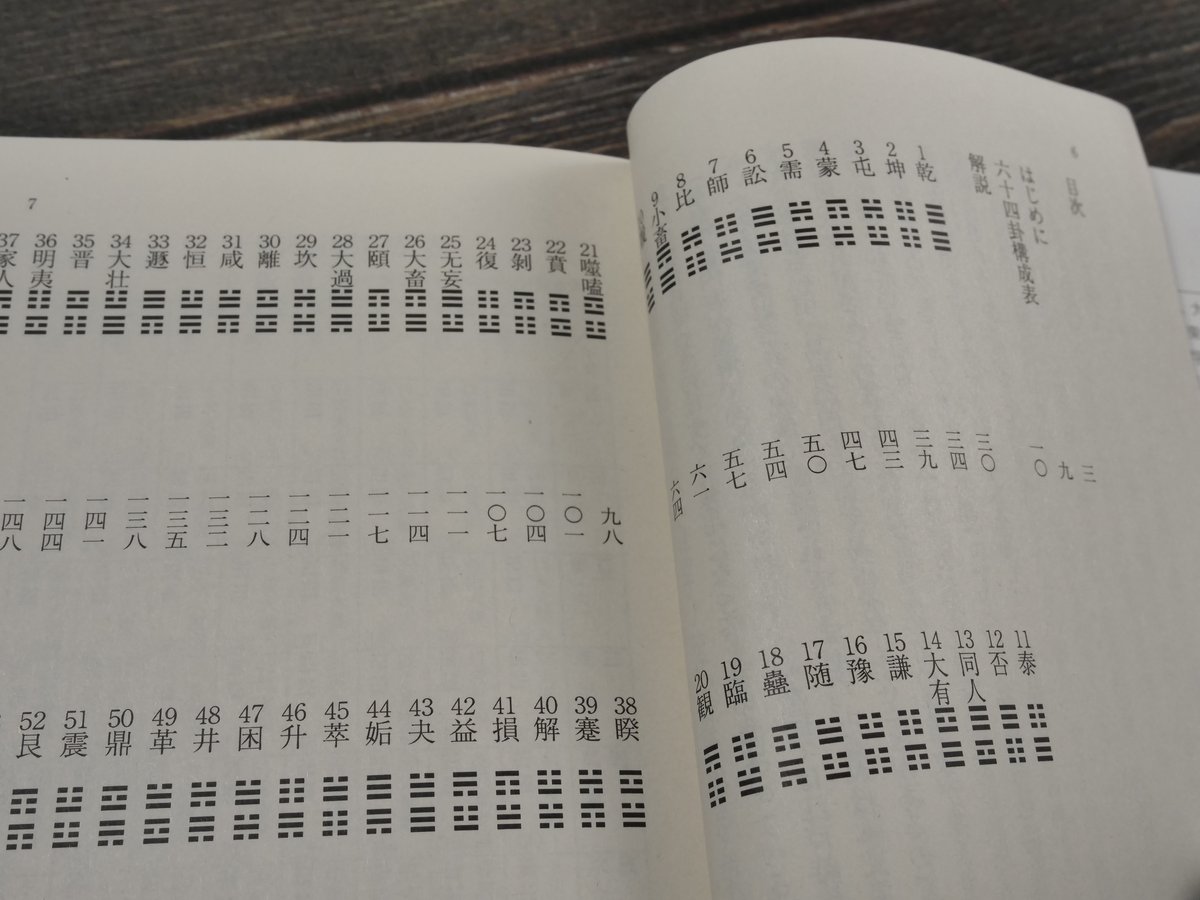 6
目次
はじめに 三
六十四卦構成表 九
解説 一〇
1乾 三〇
2坤 三四
3屯 三九
4蒙 四三
5需 四七
6訟 五〇
7師 五四
8比 五七
9小畜 六一
六四
11泰
12否
13同人
14大有
15謙
16豫
17随
18蠱
19臨
20観
7
21噬嗑 九八
22賁 一〇一
23剝 一〇四
24復 一〇七
25无妄 一一一
26大畜 一一四
27頤 一一七
28大過 一二一
29坎 一二四
30離 一二八
31咸 一三二
32恒 一三五
33遯 一三八
34大壮 一四一
35晋 一四四
36明夷 一四八
37家人
38睽
39蹇
40解
41損
42益
43夬
44姤
45萃
46升
47困
48井
49革
50鼎
51震
52艮